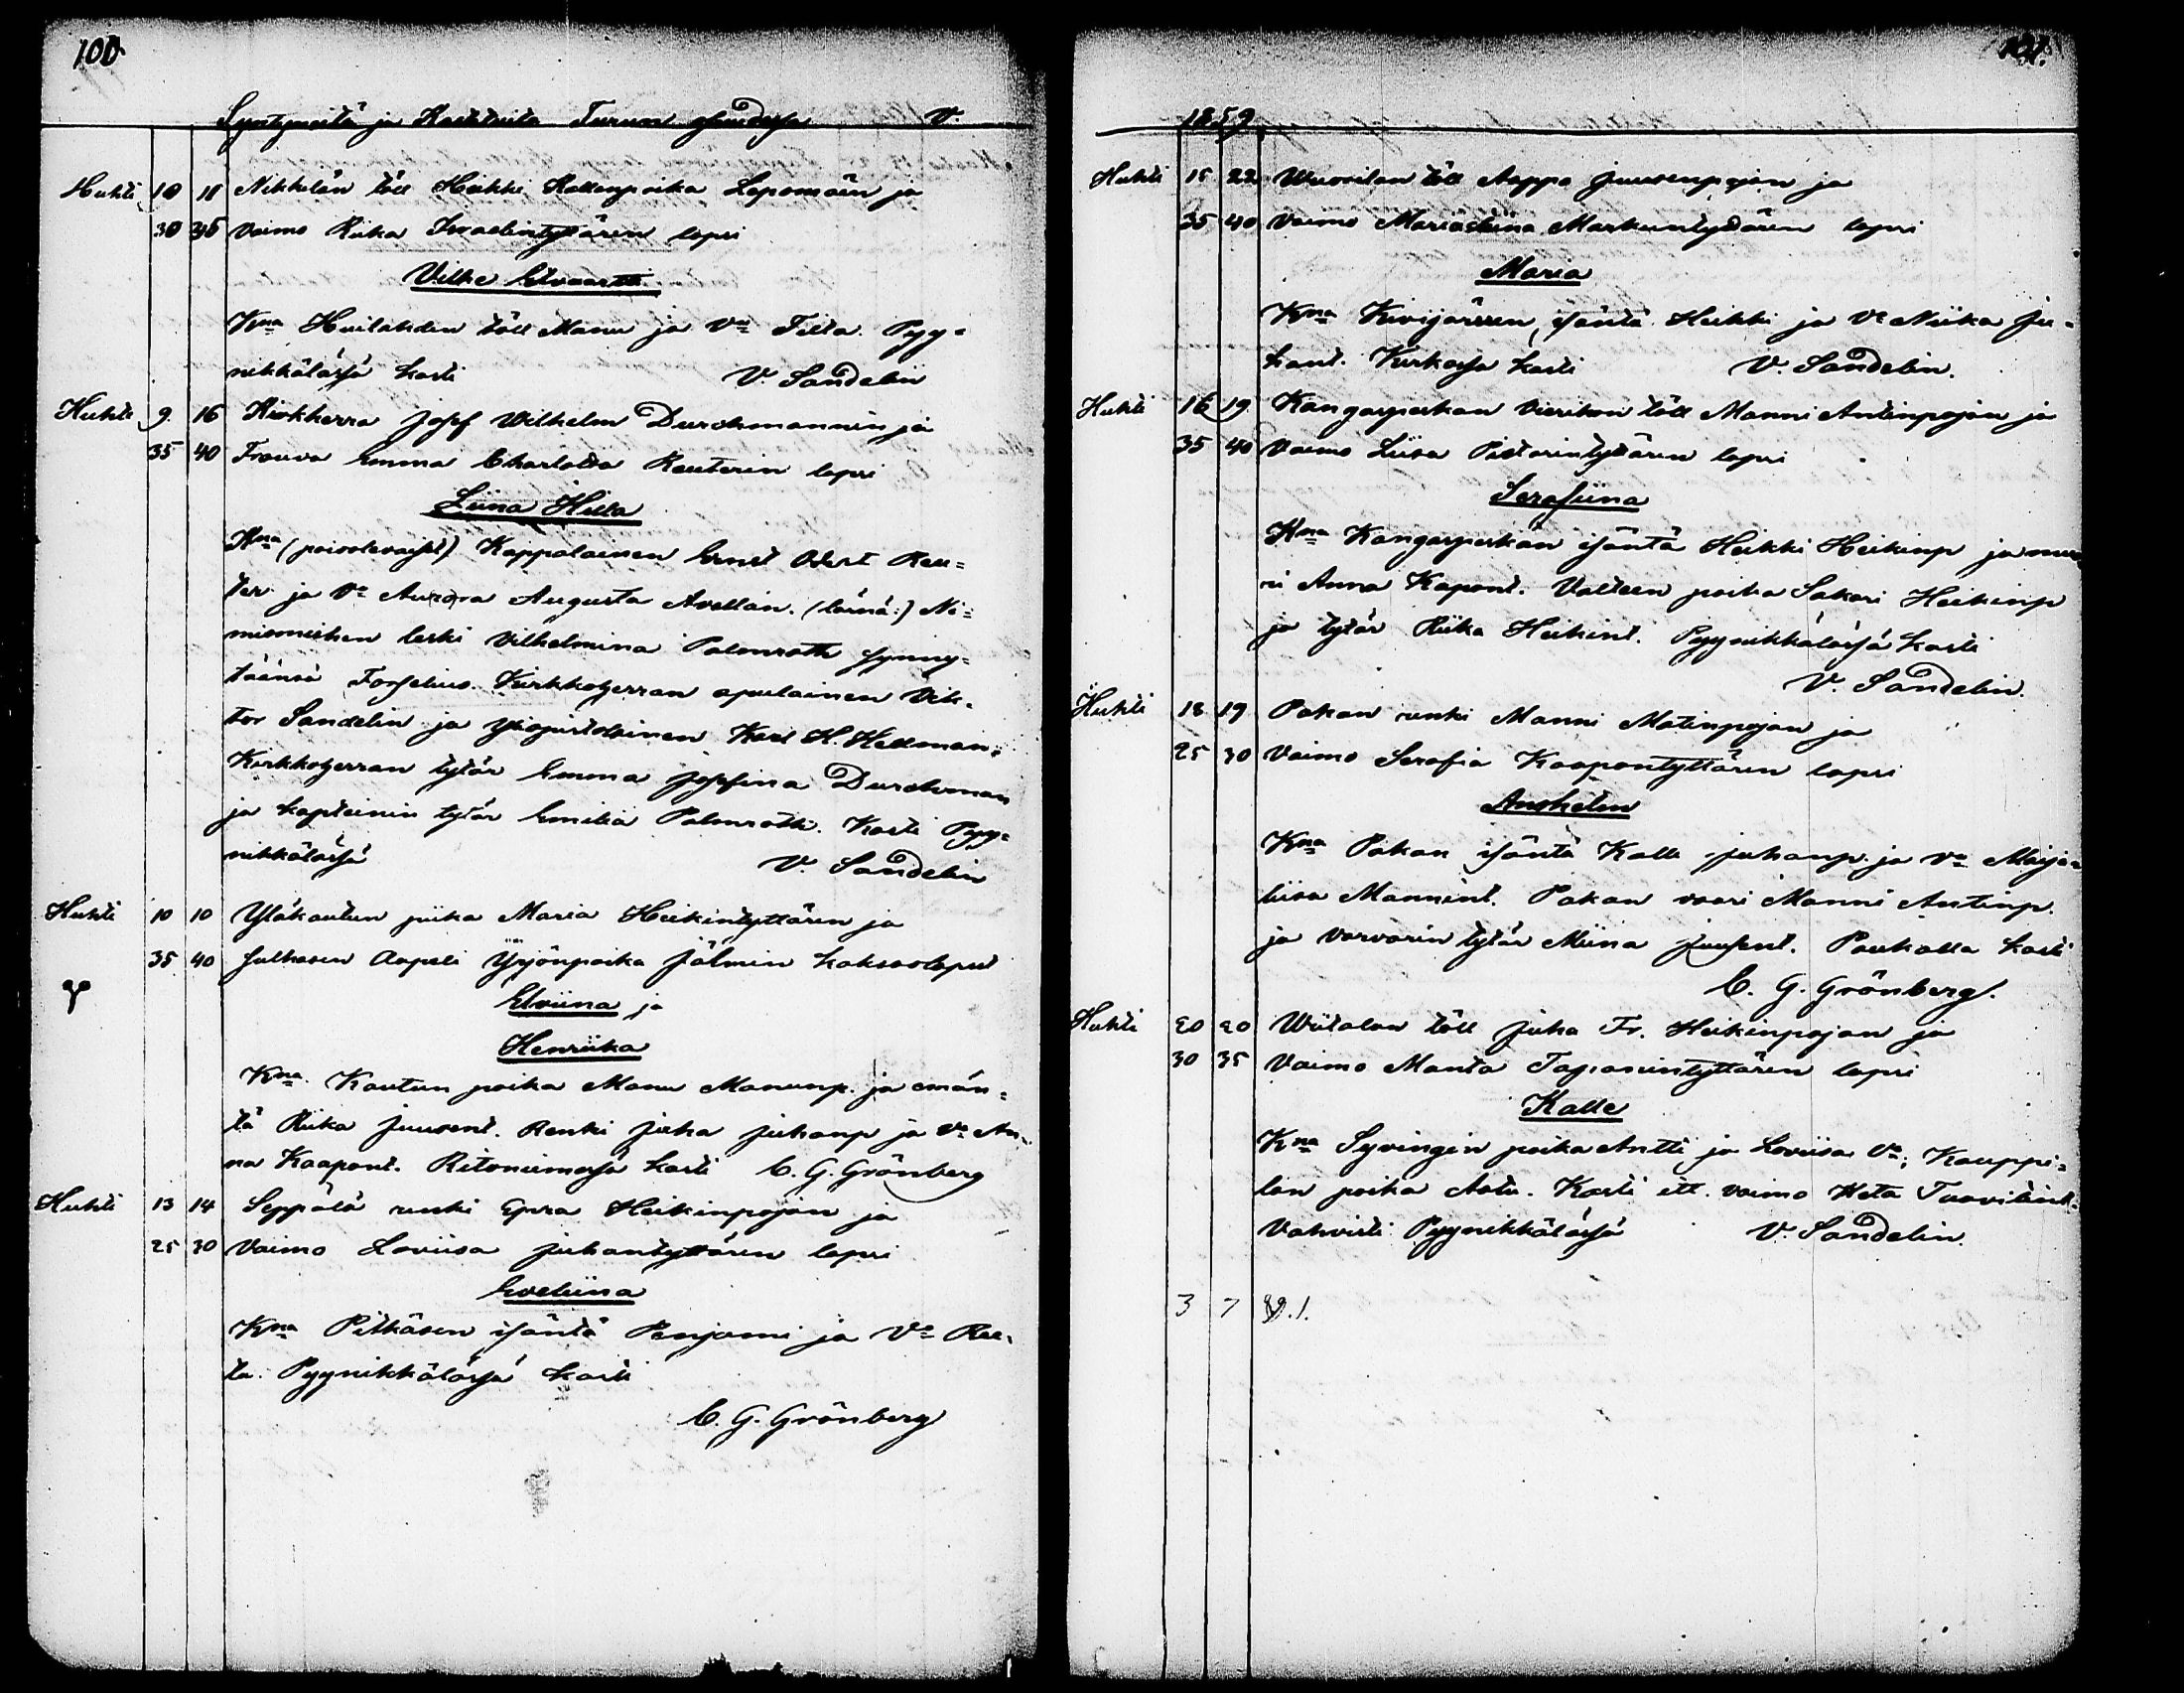 100
Syntyneitä ja Kastetuita Turun V.
Huhti 10 11 Nikkilän töll Heikki Kallenpoika Lepomäen ja
30 35 Vaimo Riika Israelintyttären lapsi
Vilhe Edvartti
Kna Huilahden töll Manu ja Vo Tilta. Pyy=
nikkälässä kasti V. Sandelin
Huhti 9. 16 Kirkkherra Josef Wilhelm Durchmannin ja
35 40 Frouva Emma Charlotta Reuterin lapsi
Liina Hilla
Kna (poisolevaiset) Kappalainen Ernst Odert Reu=
ter ja Vo Aurora Augusta Avellan. (läsnä:) Ni=
mismiehen leski Vilhelmina Palmroth synny=
täänsä Forselius. Kirkkoherran apulainen Vik=
tor Sandelin ja Yliopistolainen Karl H. Hellman;
Kirkkoherran tytär Emma Josefina Durchman
ja kapteinin tytär Emilia Palmroth. Kasti Pyy=
nikkälässä V. Sandelin
Huhti 10 10 Yläkautun piika Maria Heikintyttären ja
35 40 Julkasen Aapeli Yrjönpoika Jälmin kaksoslapset
Elviina ja
Henriika
Kna Kautun poika Manu Manunp. ja emän=
tä Riika Juusent. Renki Juha Juhanp ja Vo An=
na Kaapont. Ritoniemessä kasti C. G. Grönberg
Huhti 13 14 Seppälä renki Epra Heikinpojan ja
25 30 Vaimo Loviisa Juhantyttären lapsi
Eveliina
Kna Pitkäsen isäntä Penjami ja Vo Ree=
ta. Pyynikkälässä kasti
C. G. Grönberg
101.
1859
Huhti 15 22 Wuorilan töll Aappo Juusenpojan ja
35 40 Vaimo Mariastiina Markuntyttären lapsi
Maria
Kna Kivijärven isäntä Heikki ja Vo Niika Ju=
hant. Kirkossa kasti V. Sandelin.
Huhti 16 19. Kangasperkon Vierikon töll Manni Antinpojan ja
35 40 Vaimo Liisa Pistarintyttären lapsi
Serafiina
Kna Kangasperkän isäntä Heikki Heikinp ja muo
ri Anna Kapont. Valteen poika Sakari Heikinp
ja tytär Riika Heikint. Pyynikkälässä kasti
V. Sandelin.
Huhti 18 19 Pakan renki Manni Matinpojan ja
25 30 Vaimo Serafia Kaapontyttären lapsi
Anshelm
Kna Pakan isäntä Kalle Juhanp. ja Vo Maija=
liisa Mannint. Pakan vaari Manni Antinp.
ja varvarin tytär Miina Juusent. Paukolla kasti
C. G. Grönberg.
Huhti 20 20 Wiitalan töll Juha Fr. Heikinpojan ja
30 35 Vaimo Manta Tapanintyttären lapsi
Kalle
Kna Syvingin poika Antti ja Loviisa Vo; Kauppi=
lan poika Astu. Kasti itt. vaimo Heta Taavitint.
Vahvisti Pyynikkälässä V. Sandelin.
3 7